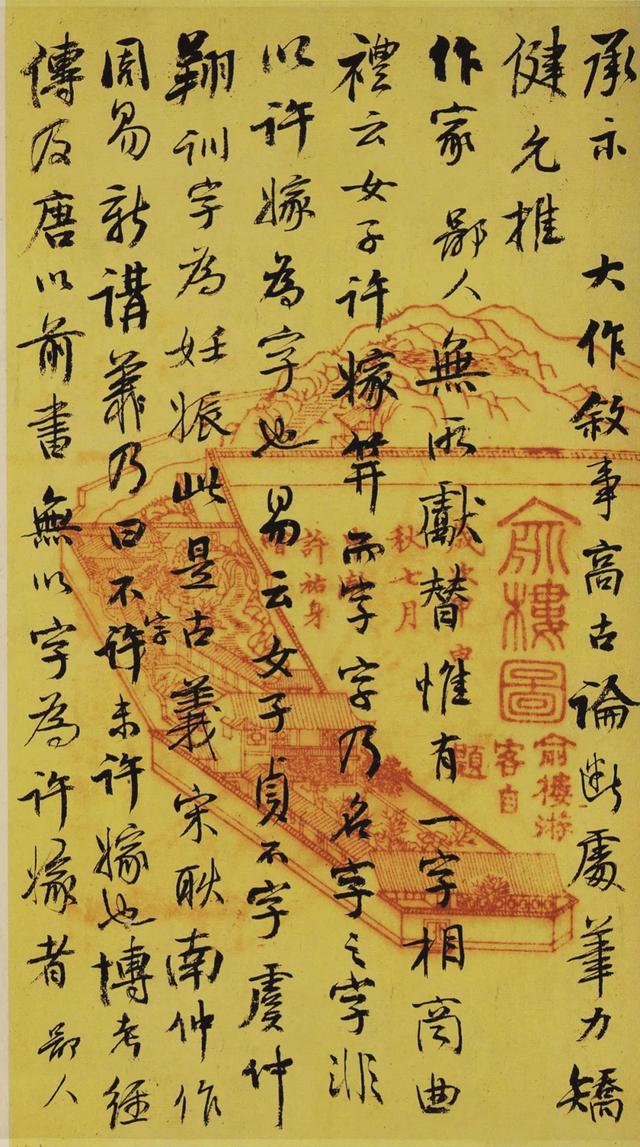 承示 大作敘事高古論斷處筆力矯
健允推
作家 鄙人無所獻替惟有一字相商曲
禮云女子許嫁笄而字字乃名字之字非
以許嫁為字也易云女子貞不字虞仲
翔訓字為妊娠此是古義宋耿南仲作
周易新講義乃曰不字許未許嫁也博考經
傳及唐以前書無以字為許嫁者鄙人
俞樓圖
俞樓游
客自
題
秋七月
許祐身